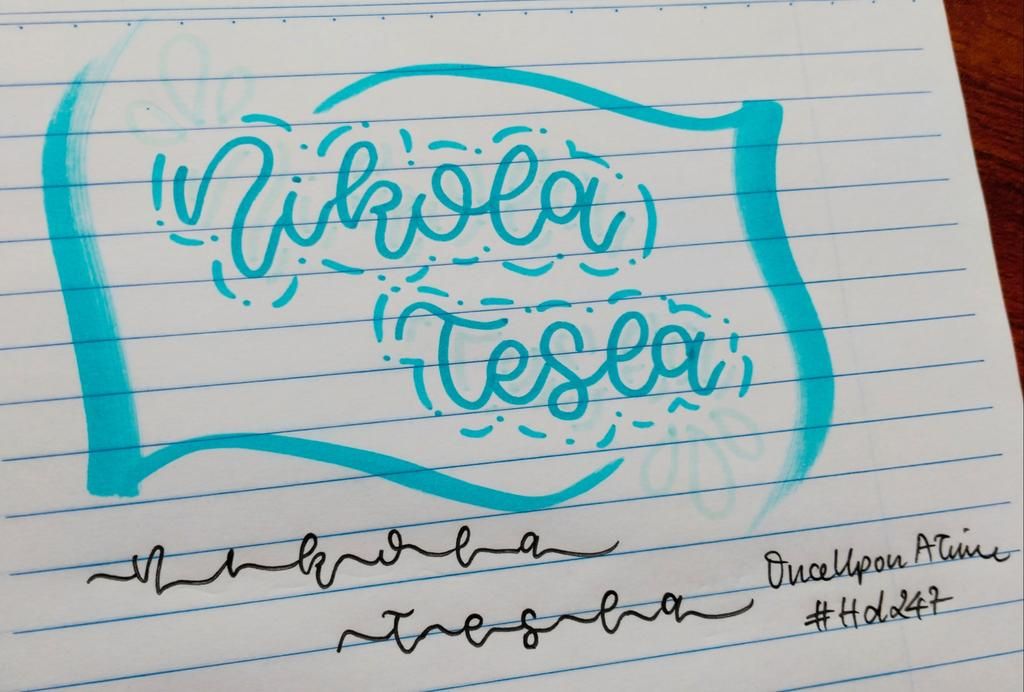 Nikola
Tesla
Nikola
Tesla
OnceUpon ATime
#Hd247